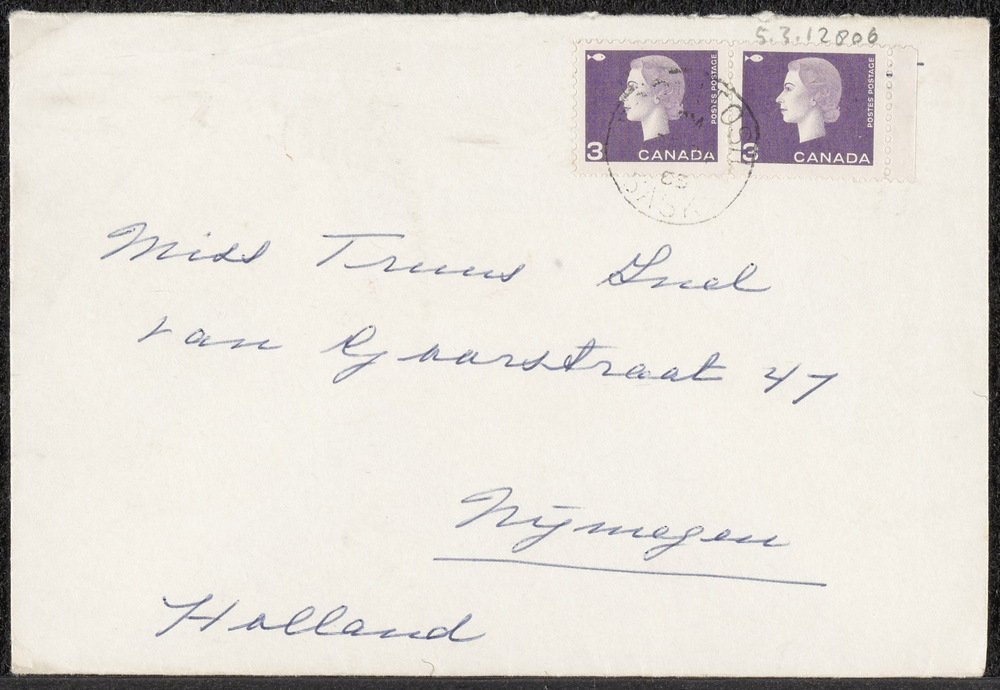 5.3.12806
POSTES POSTAGE
POSTES POSTAGE
3 CANADA
3 CANADA
63
SASK
Miss Truus Snel
van Gaarstraat 47
Nijmegen
Holland